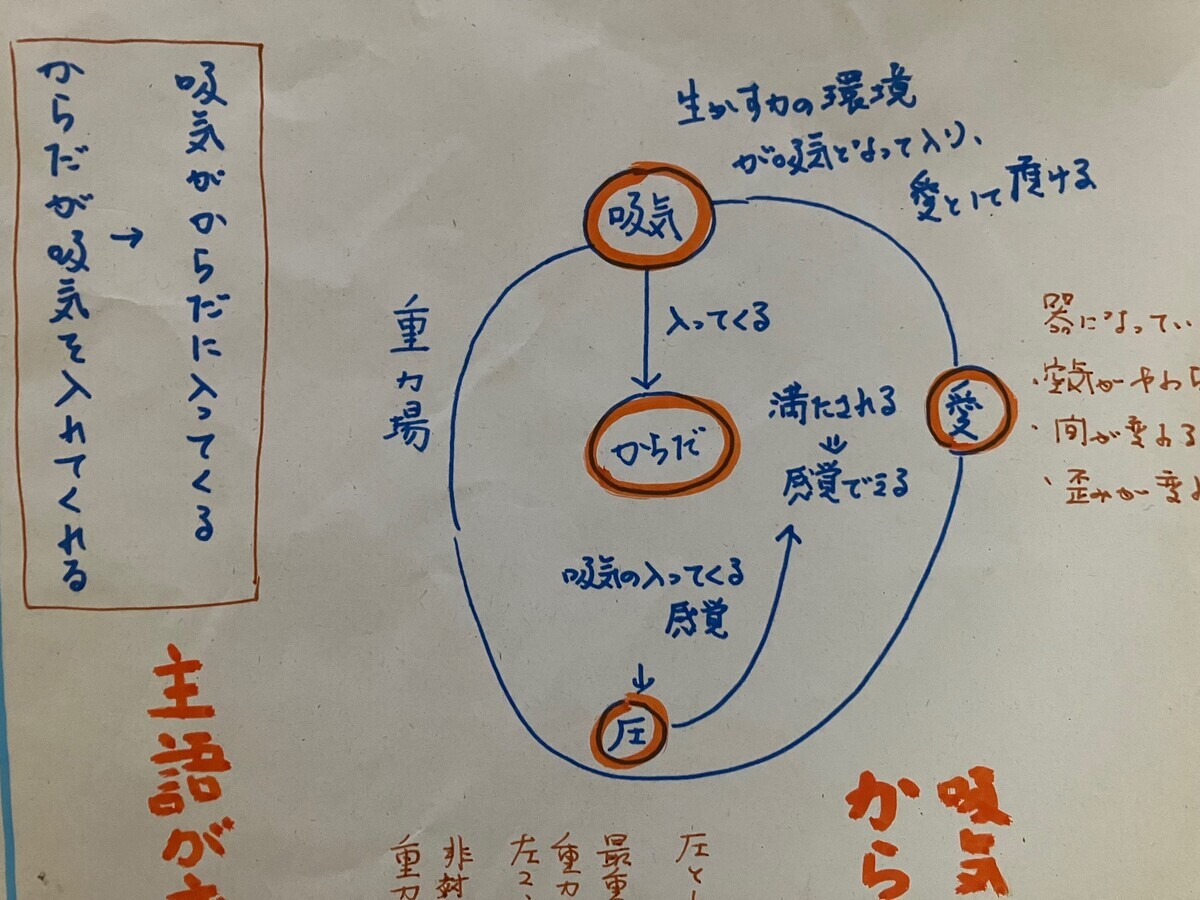 吸気がからだに入ってくる
→
からだが吸気を入れてくれる
生かす力の環境
が吸気となって入り、
愛として頂ける
吸気
入ってくる
重力場
からだ
満たされる
↓
感覚でみる
愛
器になってい
・空気がやわら
・間が変わる
・歪みが変わ
吸気の入ってくる
感覚
↓
圧
主語が
吸気
から
圧と
最重
重力
左右
非対
重力